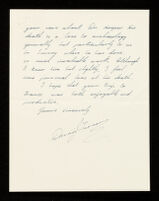 your news about Mr. Morgan. His
death is a loss to archaeology
generally but particularly to us
in Surrey where he has done
so much invaluable work. Although
I knew him but slightly, I feel
some personal loss at his death.
I hope that your trip to
France was both enjoyable and
productive.
Yours sincerely